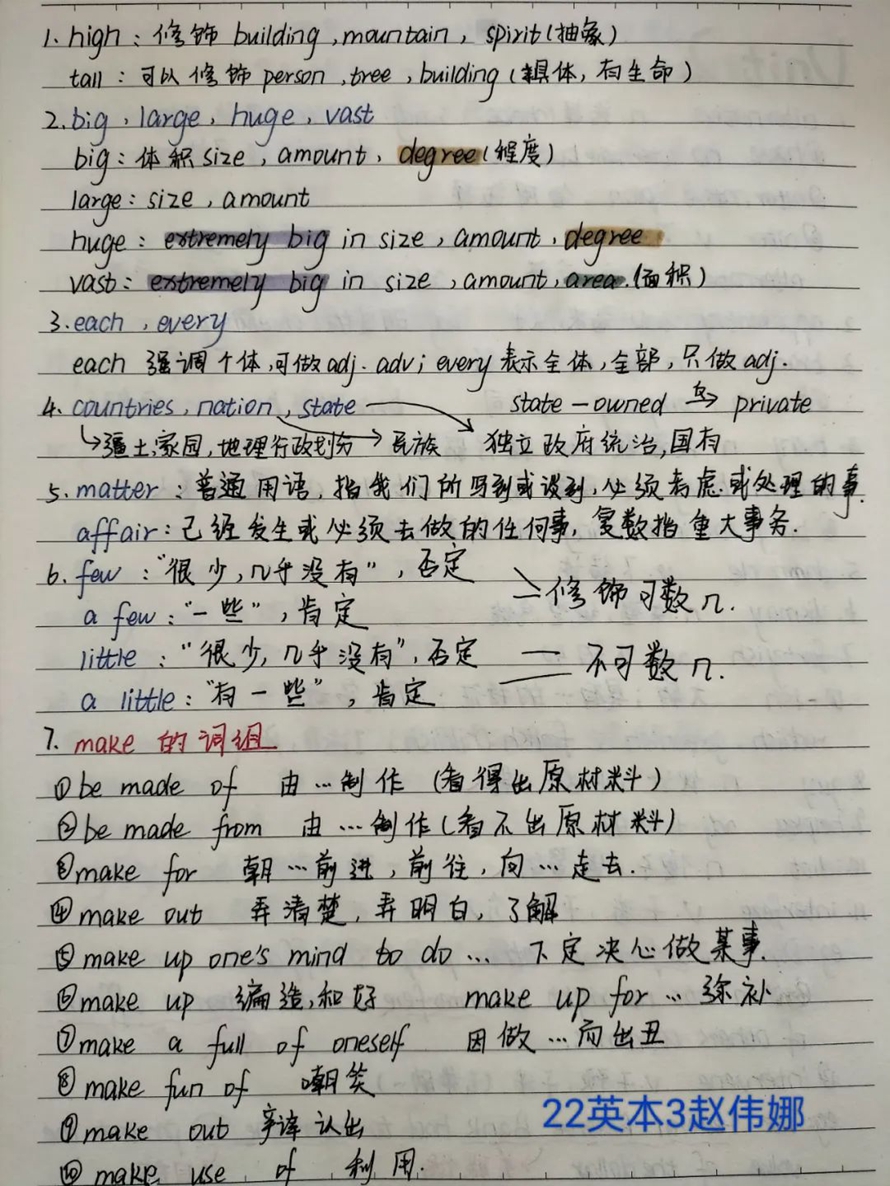 1. high：修饰 building, mountain, spirit(抽象)
tall：可以修饰 person, tree, building (具体,有生命)
2. big, large, huge, vast
big：体积 size, amount, degree(程度)
large：size, amount
huge：extremely big in size, amount, degree
vast：extremely big in size, amount, area.(面积)
3. each, every
each 强调个体,可做adj. adv; every表示全体,全部,只做adj.
4. countries, nation, state state-owned 反 private
疆土,家园,地理行政划分 民族 独立政府统治,国有
5. matter：普通用语,指我们所写到或谈到,必须考虑或处理的事.
affair：已经发生或必须去做的任何事,复数指重大事务.
6. few："很少,几乎没有",否定
a few："一些",肯定 修饰可数n.
little："很少,几乎没有",否定 不可数n.
a little："有一些",肯定
7. make 的词组
①be made of 由…制作 (看得出原材料)
②be made from 由…制作(看不出原材料)
③make for 朝…前进,前往,向…走去.
④make out 弄清楚,弄明白,了解
⑤make up one's mind to do… 下定决心做某事.
⑥make up 编造,和好 make up for … 弥补
⑦make a full of oneself 因做…而出丑
⑧make fun of 嘲笑
⑨make out 认出
⑩make use of 利用.
22英本3赵伟娜